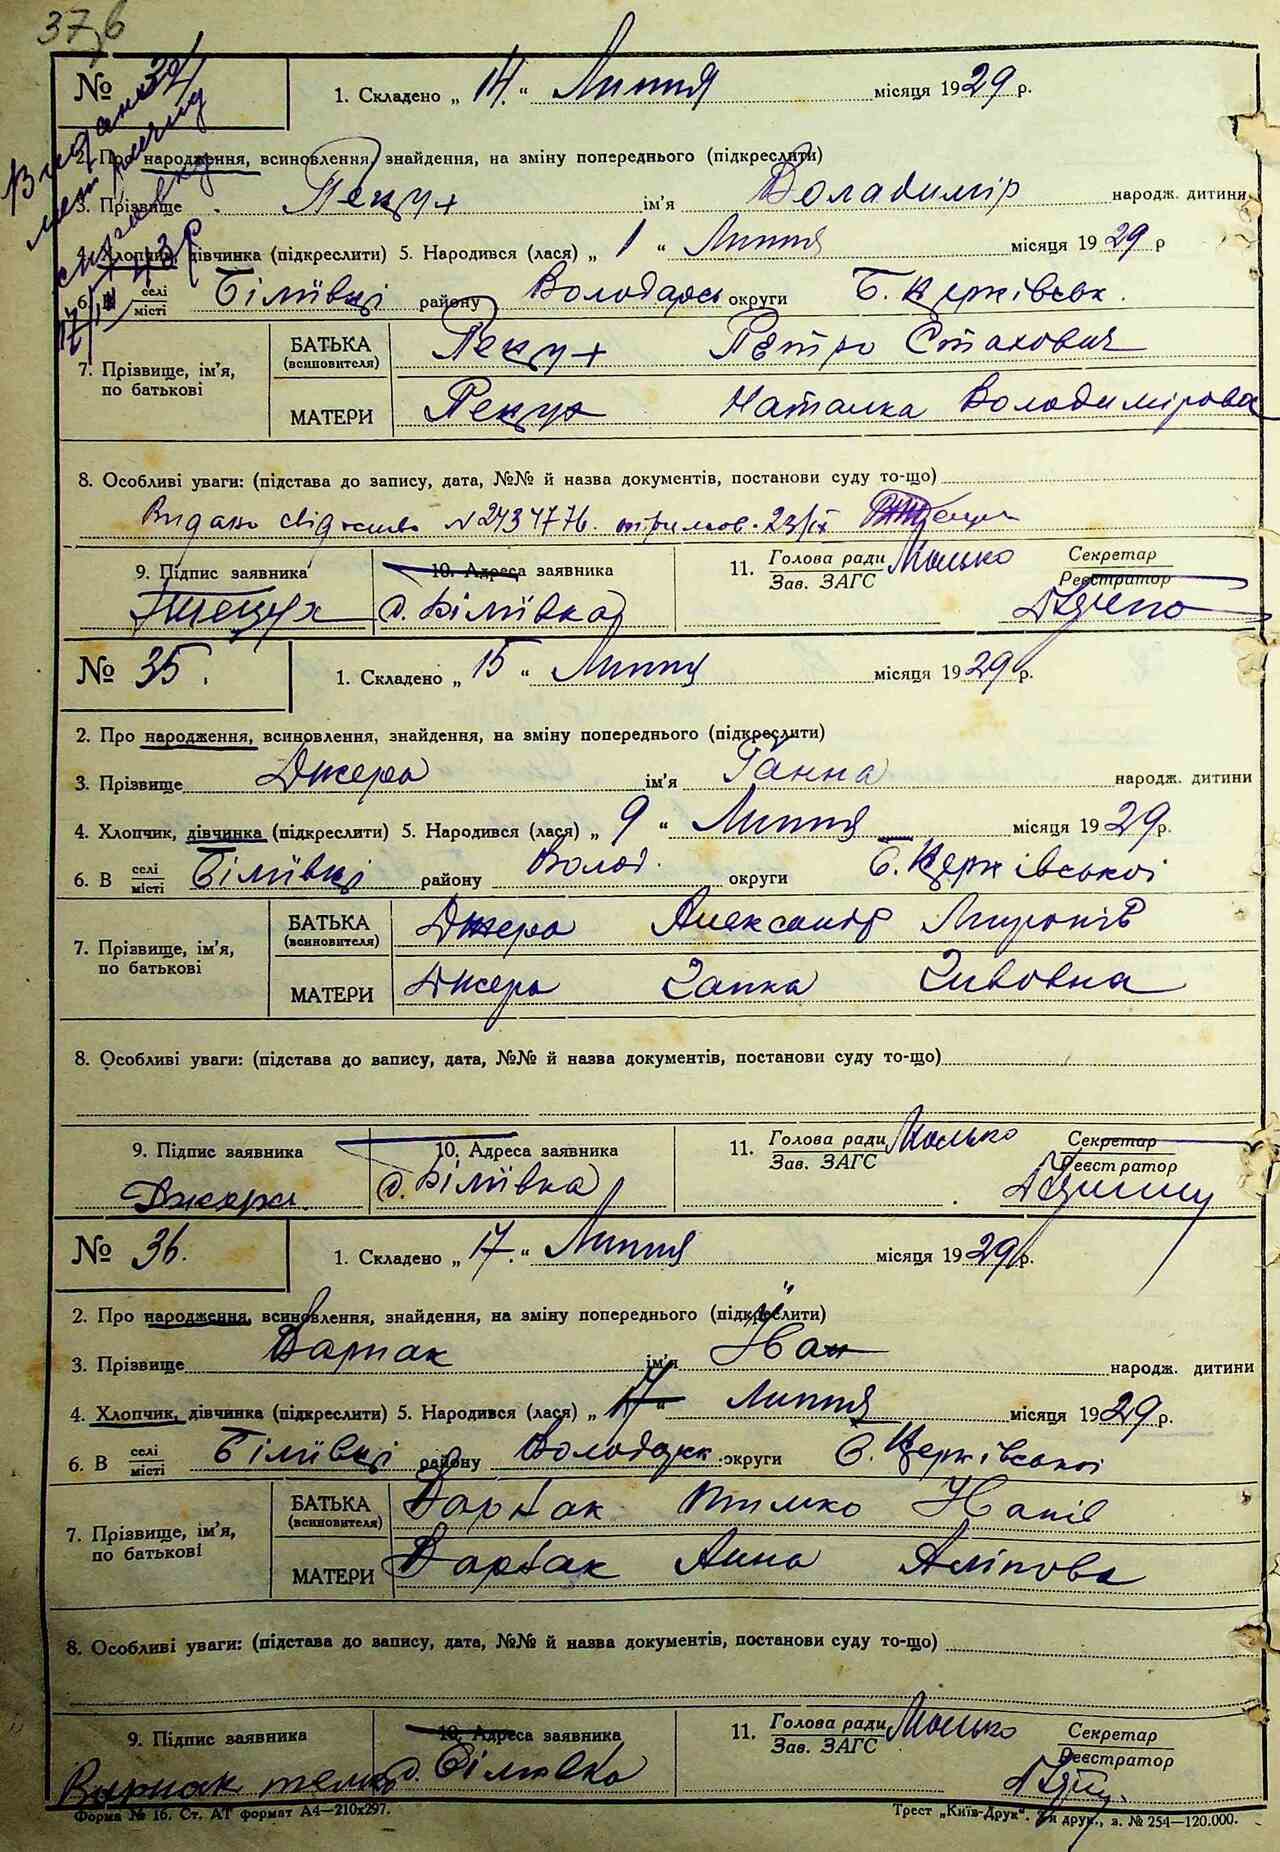 37б
№ 34
1. Складено „ 14. “ Липня місяця 1929 р.
2. Про народження, всиновлення, знайдення, на зміну попереднього (підкреслити)
3. Прізвище Пекух ім'я Воладимір народж. дитини
4. Хлопчик, дівчинка (підкреслити) 5. Народився (лася) „ 1 “ Липня місяця 1929 р
6. В селі місті Біліївці району Володарсь округи Б. Церківськ.
7. Прізвище, ім'я, по батькові
БАТЬКА (всиновителя) Пекух Петро Стахович
МАТЕРИ Пекух Наталка Володимірова
8. Особливі уваги: (підстава до запису, дата, №№ й назва документів, постанови суду то-що)
Видано свідоцтво N 2434776. 23/IX
9. Підпис заявника 10. Адреса заявника 11. Голова ради Зав. ЗАГС Секретар Реєстратор
с. Біліївка
№ 35.
1. Складено „ 15 “ Липня місяця 1929 р.
2. Про народження, всиновлення, знайдення, на зміну попереднього (підкреслити)
3. Прізвище Джера ім'я Ганна народж. дитини
4. Хлопчик, дівчинка (підкреслити) 5. Народився (лася) „ 9 “ Липня місяця 1929 р.
6. В селі місті Біліївці району Волод. округи Б. Церківської
7. Прізвище, ім'я, по батькові
БАТЬКА (всиновителя) Джера Александр Миронів
МАТЕРИ Джера
8. Особливі уваги: (підстава до запису, дата, №№ й назва документів, постанови суду то-що)
9. Підпис заявника 10. Адреса заявника 11. Голова ради Зав. ЗАГС Секретар Реєстратор
Джера с. Біліївка
№ 36.
1. Складено „ 17. “ Липня місяця 1929 р.
2. Про народження, всиновлення, знайдення, на зміну попереднього (підкреслити)
3. Прізвище Варпак ім'я Йван народж. дитини
4. Хлопчик, дівчинка (підкреслити) 5. Народився (лася) „ 17 “ Липня місяця 1929 р.
6. В селі місті Біліївці району Володарк округи Б. Церківської
7. Прізвище, ім'я, по батькові
БАТЬКА (всиновителя) Варпак Тимко
МАТЕРИ Варпак Анна
8. Особливі уваги: (підстава до запису, дата, №№ й назва документів, постанови суду то-що)
9. Підпис заявника 10. Адреса заявника 11. Голова ради Зав. ЗАГС Секретар Реєстратор
Варпак с. Біліївка
Форма № 16. Ст. АТ формат А4—210х297. Трест „Київ-Друк“. друк., з. № 254—120.000.